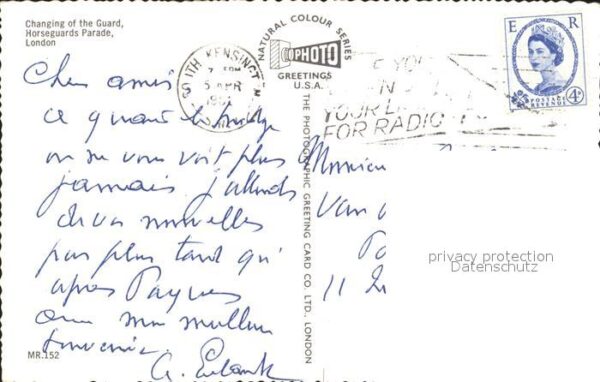 Changing of the Guard,
Horseguards Parade,
London
NATURAL COLOUR SERIES
PHOTO
GREETINGS
U.S.A.
SOUTH KENSINGTON
5 APR
E R
POSTAGE
REVENUE
4D
YOUR
FOR RADIO
THE PHOTOGRAPHIC GREETING CARD CO. LTD., LONDON
Chers amis
à quand le bridge
on ne vous voit plus
jamais. J'attends
de vos nouvelles
pas plus tard qu'
après Pâques
mon meilleur
souvenir.
G.
Monsieur
Van
11
privacy protection
Datenschutz
MR.152